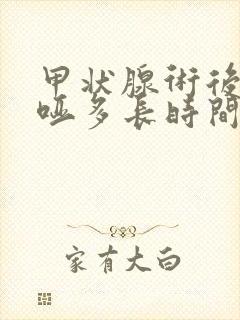 甲状腺術後
哑多長時間
家有大白